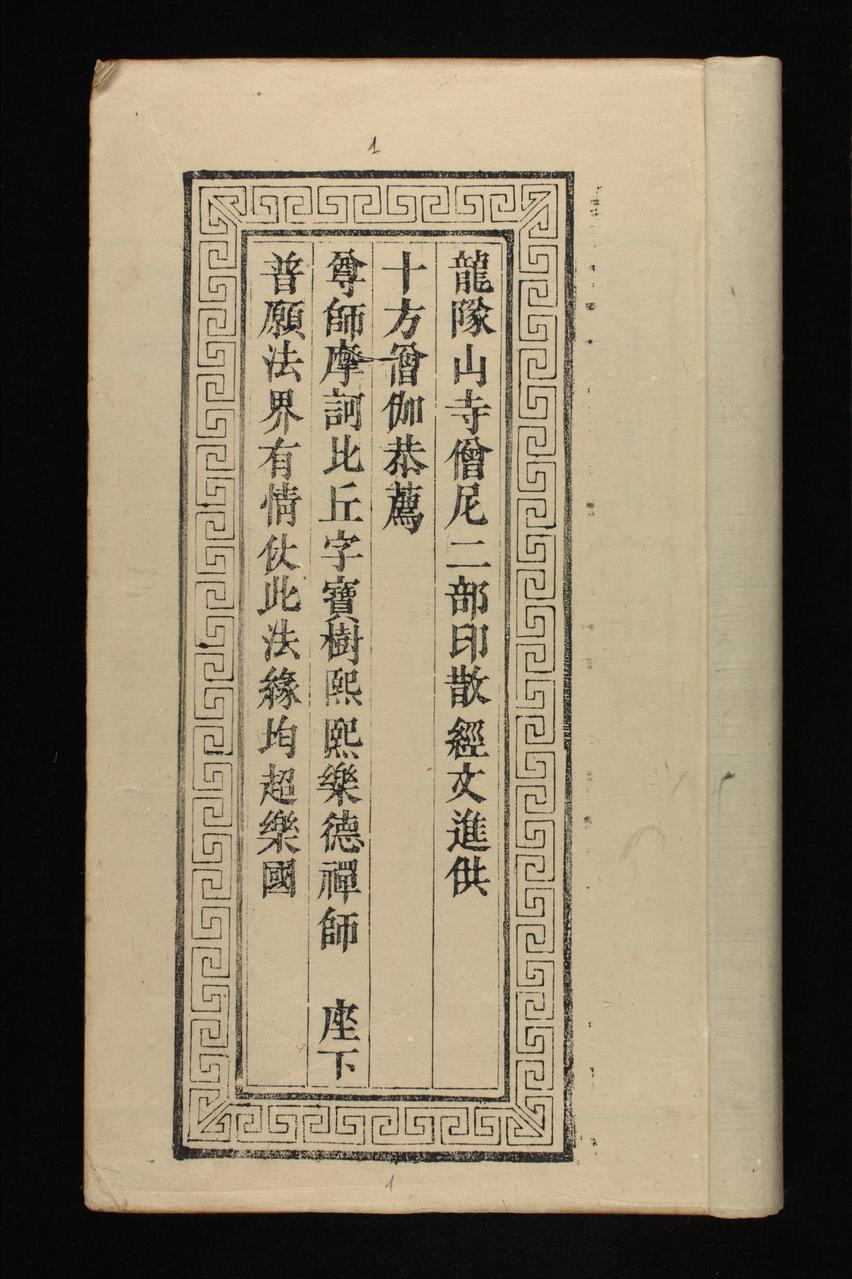 1
龍隊山寺僧尼二部印散經文進供
十方僧伽恭薦
尊師摩訶比丘字寶樹熙熙樂德禪師　座下
普願法界有情仗此法緣均超樂國
1